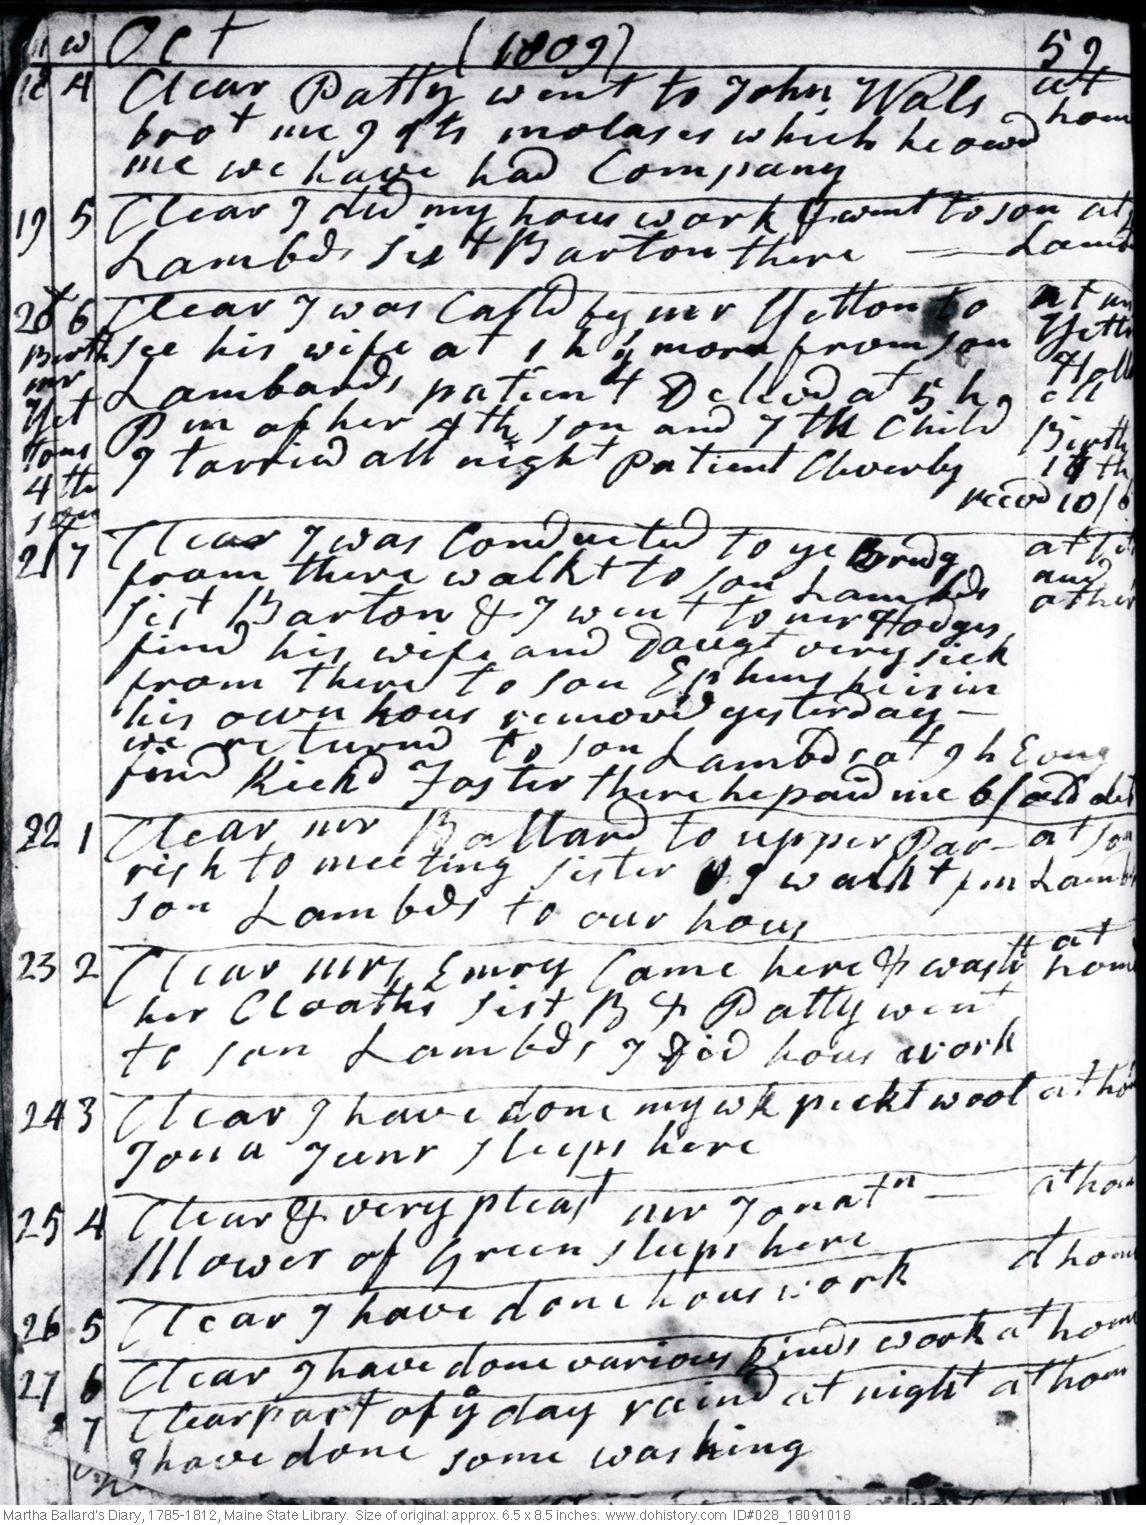 m w Oct (1809) 59
18 4 Clear Patty went to John Wals at
brot me 9 qts molases which he owd home
me we have had Company
19 5 Clear I did my hous work & went to son at
Lambds Sist Barton there — Lambd
20 6 Clear I was Calld by mr Yetton to at mr
Birth see his wife at 1 h y morn from son Yetto
mr Lambards patient Delivd at 5 h Hall
Yet P m of her 4th son and 7th Child ell
tons I tarried all night patient Cleverly Birth
4th 18th
son recevd 10/6
21 7 Clear I was Conducted to ye Bridg at
from there walkt to son Lambds and
Sist Barton & I went to mr Hodges other
find his wife and Daugt very sick
from there to son Ephms he is in
his own hous removd yesterday —
we returnd to son Lambds at 9 h Evng
find Richd Foster there he paid me 6/ old det
22 1 Clear mr Ballard to upper Par- at son
rish to meeting sister & I walkt fm Lambd
son Lambds to our hous
23 2 Clear mrs Emry Came here & washt at
her Cloaths Sist B & Patty went home
to son Lambds I did hous work
24 3 Clear I have done my wk peckt wool at ho
Jona Junr sleeps here
25 4 Clear & very pleast mr Jonatn — at hom
Mower of Green sleeps here
26 5 Clear I have done hous work at home
27 6 Clear I have done various kinds work at home
7 Clear part of ye day raind at night at hom
I have done some washing
Martha Ballard's Diary, 1785-1812, Maine State Library. Size of original: approx. 6.5 x 8.5 inches. www.dohistory.com ID#028_18091018